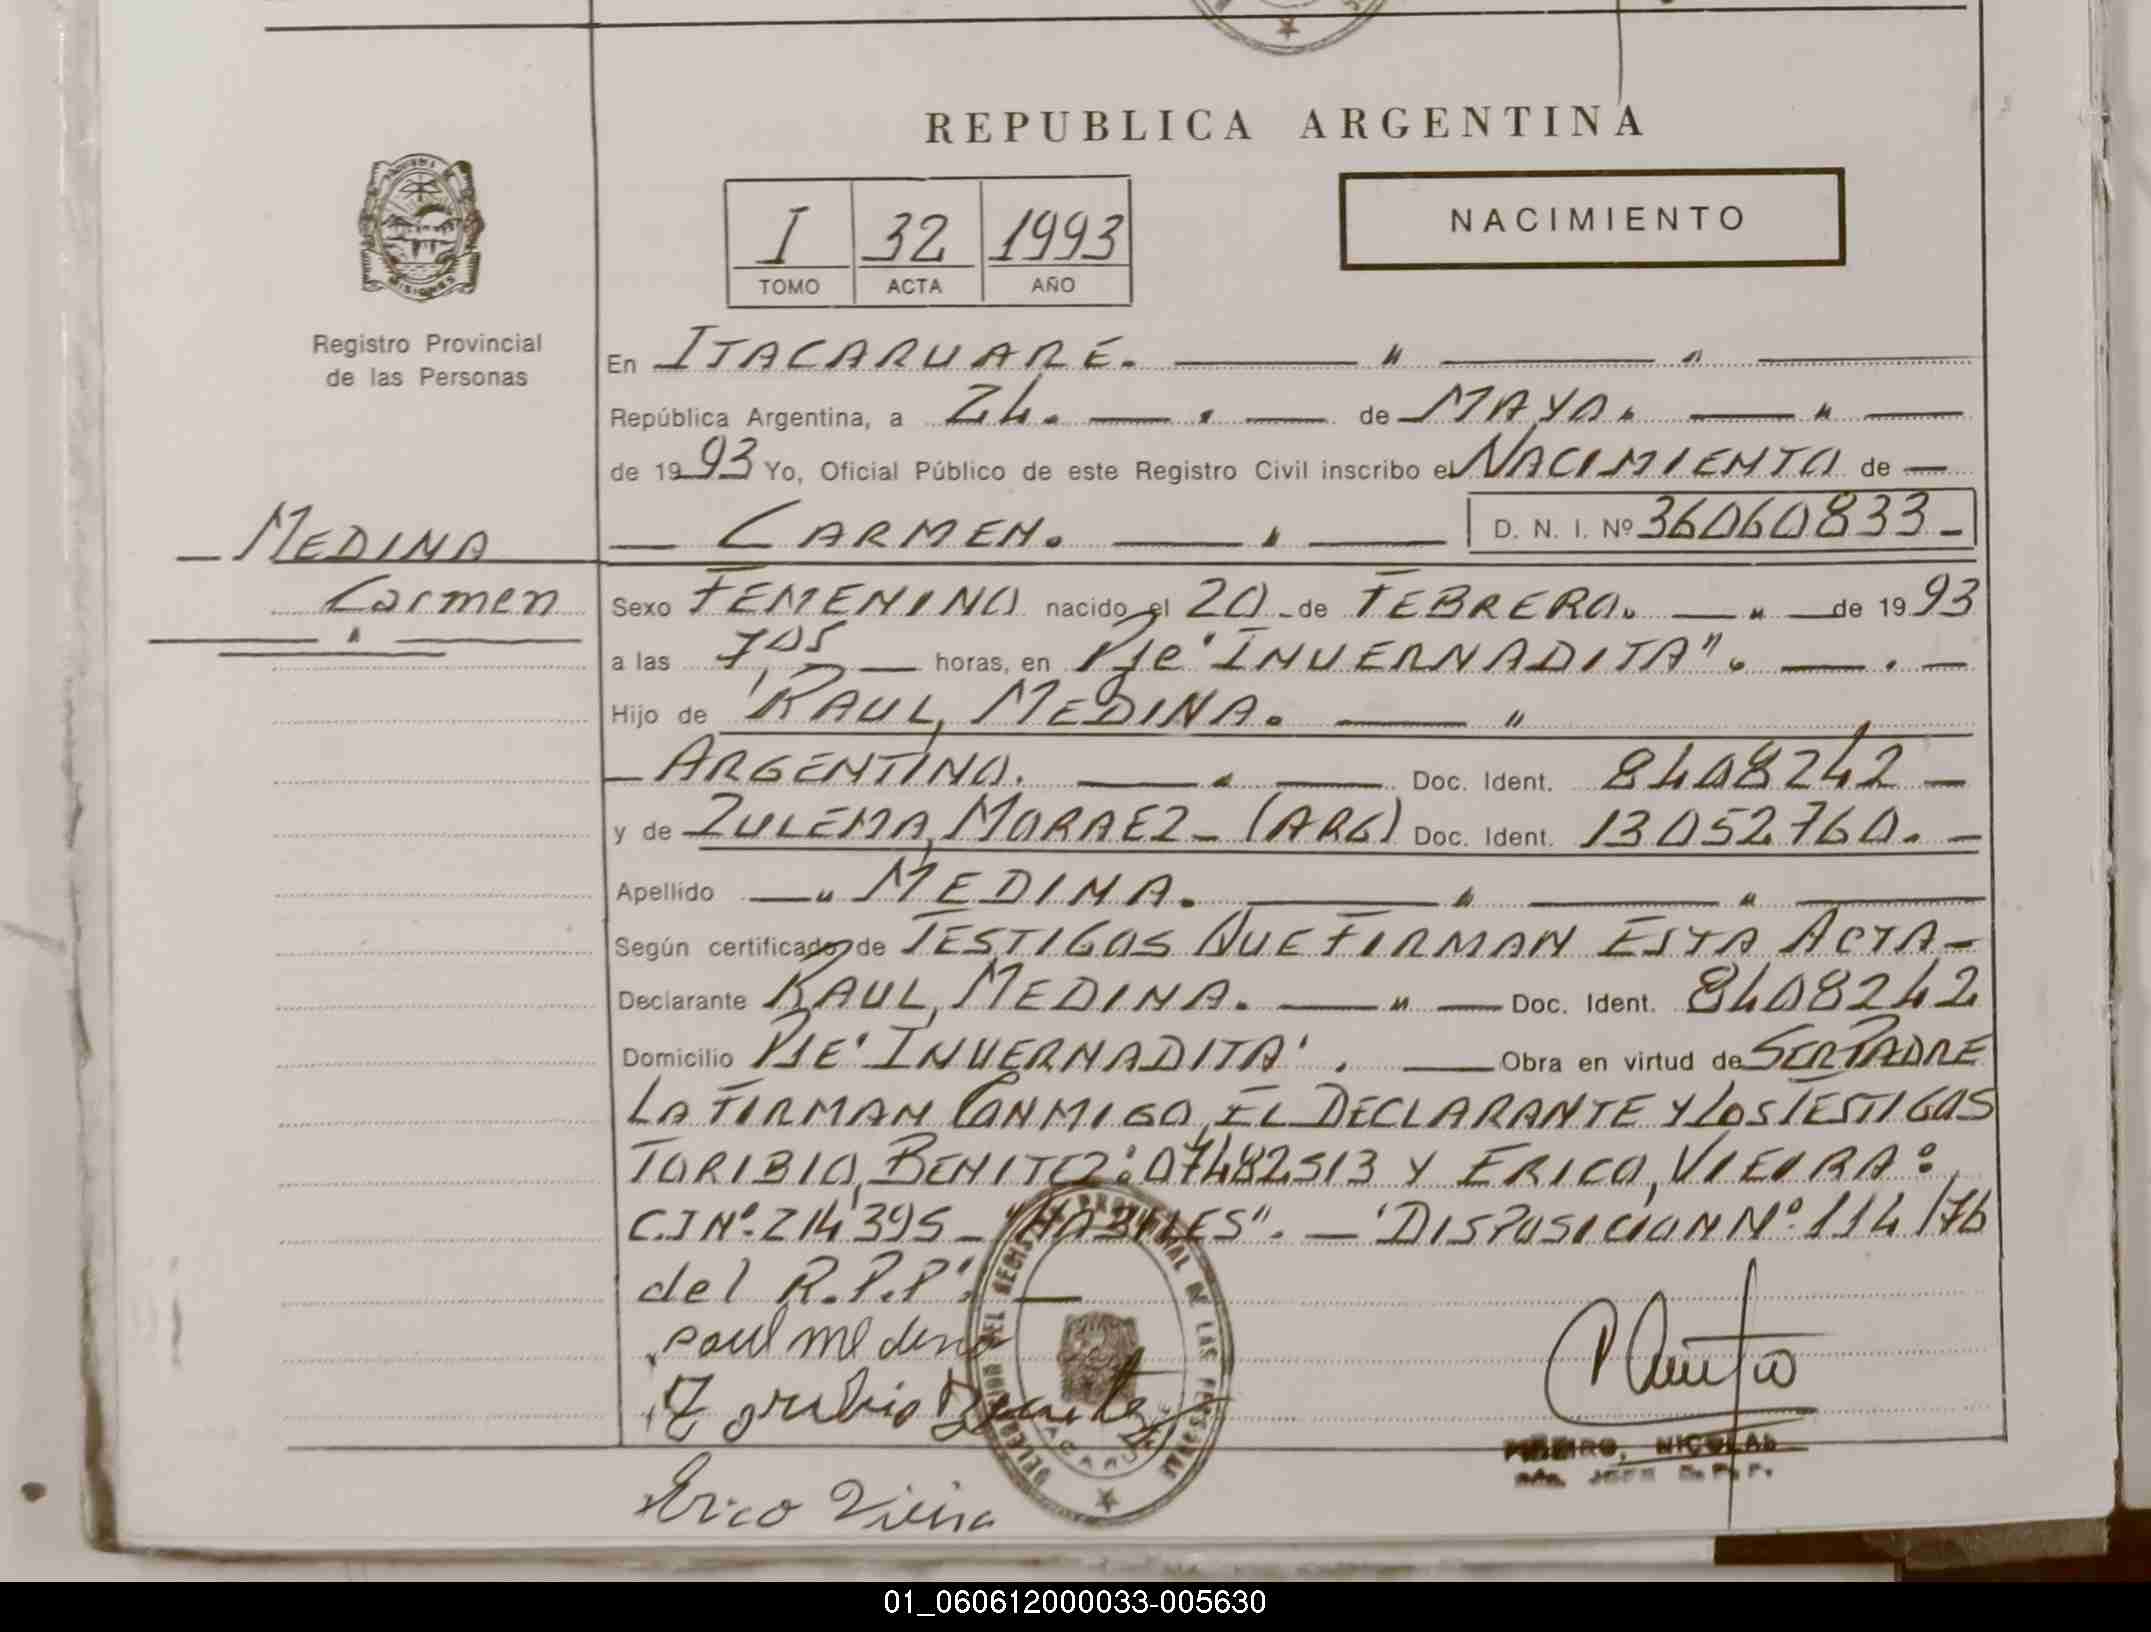 REPUBLICA ARGENTINA
NACIMIENTO
I 32 1993
TOMO ACTA AÑO
MISIONES
Registro Provincial
de las Personas
En ITACARUARÉ.
República Argentina, a 24. de MAYO.
de 1993 Yo, Oficial Público de este Registro Civil inscribo el NACIMIENTO de
MEDINA
Carmen
CARMEN. D. N. I. Nº 36060833
Sexo FEMENINO nacido el 20 de FEBRERO. de 1993
a las 7,05 horas, en PJe "INVERNADITA".
Hijo de RAUL, MEDINA.
ARGENTINO. Doc. Ident. 8408242
y de ZULEMA, MORAEZ (ARG) Doc. Ident. 13052760.
Apellido MEDINA.
Según certificado de TESTIGOS QUE FIRMAN ESTA ACTA
Declarante RAUL, MEDINA. Doc. Ident. 8408242
Domicilio PJE "INVERNADITA". Obra en virtud de SER PADRE
LA FIRMAN CONMIGO, EL DECLARANTE Y LOS TESTIGOS
TORIBIO, BENITEZ: 07482513 Y ERICO, VIEIRA:
C.I Nº. 214395 "HABILES". "DISPOSICION Nº 114/76
del R.P.P".
raul medina
Toribio Benitez
Erico Vieira
DELEGACION DEL REGISTRO PROVINCIAL DE LAS PERSONAS
ITACARUARE
NICOLAS
JEFE R. P. P.
01_060612000033-005630